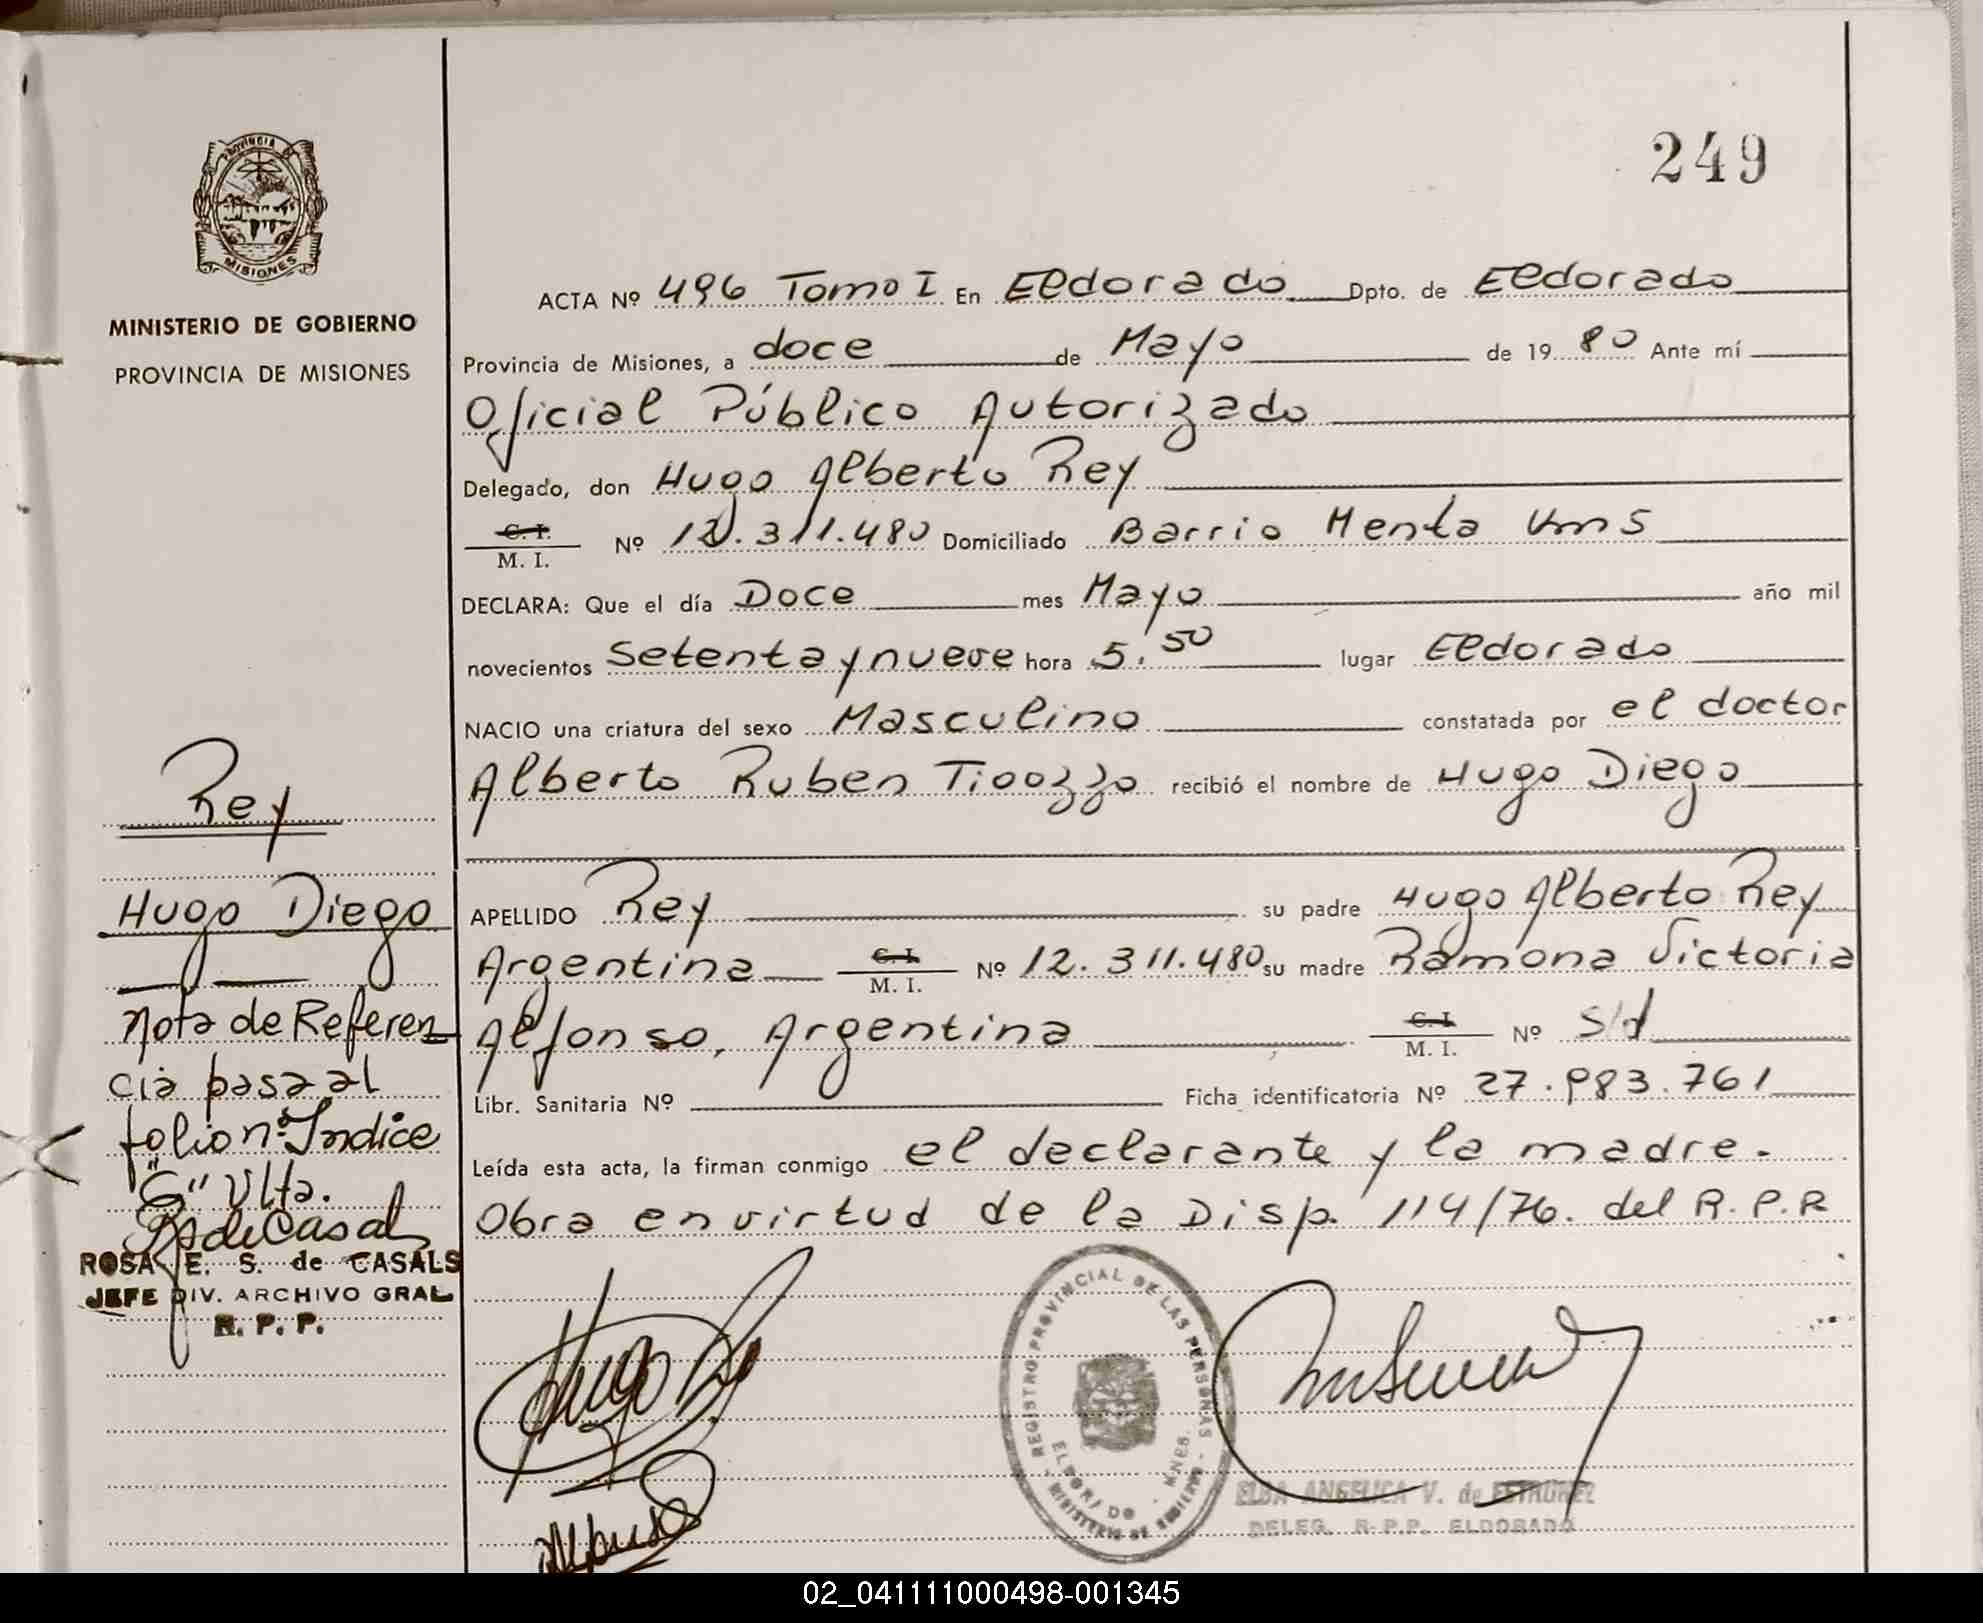 249
PROVINCIA DE
MISIONES
MINISTERIO DE GOBIERNO
PROVINCIA DE MISIONES
ACTA Nº 496 Tomo I En Eldorado Dpto. de Eldorado
Provincia de Misiones, a doce de Mayo de 19 80 Ante mí
Oficial Público Autorizado
Delegado, don Hugo Alberto Rey
C. I.
M. I.
Nº 12.311.480 Domiciliado Barrio Menta Km 5
DECLARA: Que el día Doce mes Mayo año mil
novecientos setenta y nueve hora 5.50 lugar Eldorado
NACIO una criatura del sexo Masculino constatada por el doctor
Alberto Ruben Tiozzo recibió el nombre de Hugo Diego
APELLIDO Rey su padre Hugo Alberto Rey
Argentina C. I. M. I. Nº 12.311.480 su madre Ramona Victoria
Alfonso, Argentina C. I. M. I. Nº s/d
Libr. Sanitaria Nº Ficha identificatoria Nº 27.983.761
Leída esta acta, la firman conmigo el declarante y la madre.
Obra en virtud de la Disp. 114/76. del R.P.R
Rey
Hugo Diego
Nota de Referen
cia pasa al
folio nº Indice
"G" Vlta.
RSdeCasals
ROSA E. S. de CASALS
JEFE DIV. ARCHIVO GRAL
R. P. P.
Hugo Rey
REGISTRO PROVINCIAL DE LAS PERSONAS
ELDORADO - MNES.
MINISTERIO DE GOBIERNO
ELBA ANGELICA V. de
DELEG. R.P.P. ELDORADO
02_041111000498-001345